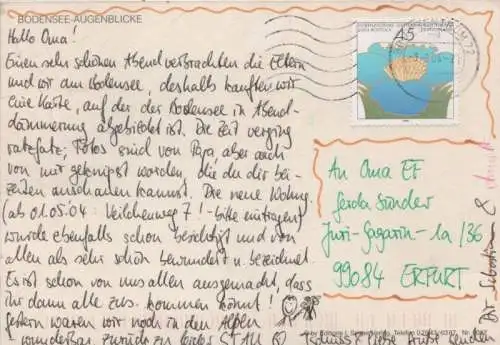 BODENSEE-AUGENBLICKE
Hallo Oma!
Einen sehr schönen Abend verbrachten die Eltern
und wir am Bodensee, deshalb kauften wir
eine Karte, auf der der Bodensee in Abend-
dämmerung abgebildet ist. Die Zeit verging
ratzfatz, Fotos sind von Papa, aber auch
von mir geknipst worden, die du dir bei-
zeiten anschauen kannst. Die neue Wohng.
(ab 01.05.04 Veilchenweg 7! - bitte eintragen)
wurde ebenfalls schon besichtigt und von
allen als sehr schön bewundert u. bezeichnet.
Es ist schon von uns allen ausgemacht, dass
ihr dann alle zus. kommen könnt!
Gestern waren wir noch in den Alpen
- wunderbar. zurück zu
Tschüss & liebe Grüße senden
Dir Sebastian &
45
DEUTSCHLAND
An Oma EF
Gerda Sünder
Juri-Gagarin- 1a/36
99084 ERFURT